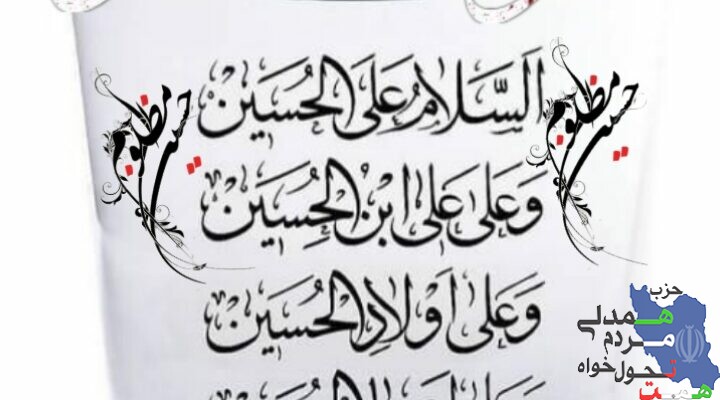 اَلسَّلامُ عَلَی الحُسَین
وَ عَلی عَلی ابنِ الحُسَین
وَ عَلی اَولادِ الحُسَین
حسین مظلوم
حسین مظلوم
حزب
همدلی
مردم
تحول خواه
همت